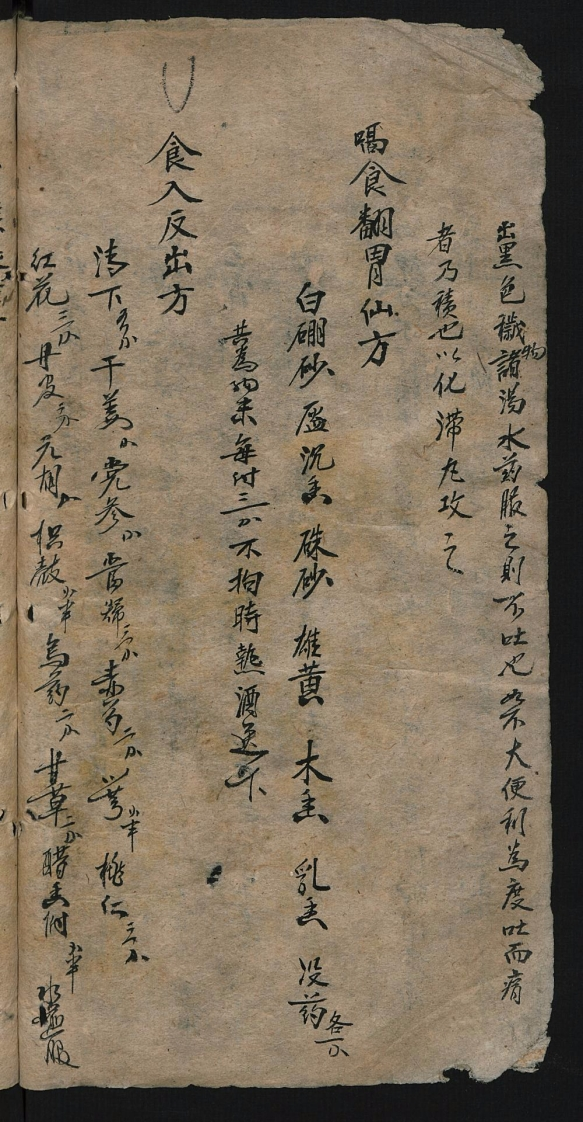 出黑色穢物諸湯水药服之則不吐也 大便利為度吐而痛
者乃積也以化滞丸攻之
噎食翻胃仙方
白硼砂 沉香 硃砂 雄黄 木香 乳香 没药各一分
共為細末每付三分不拘時熱酒送下
食入反出方
清下 干姜 党参 當歸 赤芍二分 桃仁三分
红花三分 丹皮 元胡 枳殼 烏药二分 甘草 醋香附 水煎服